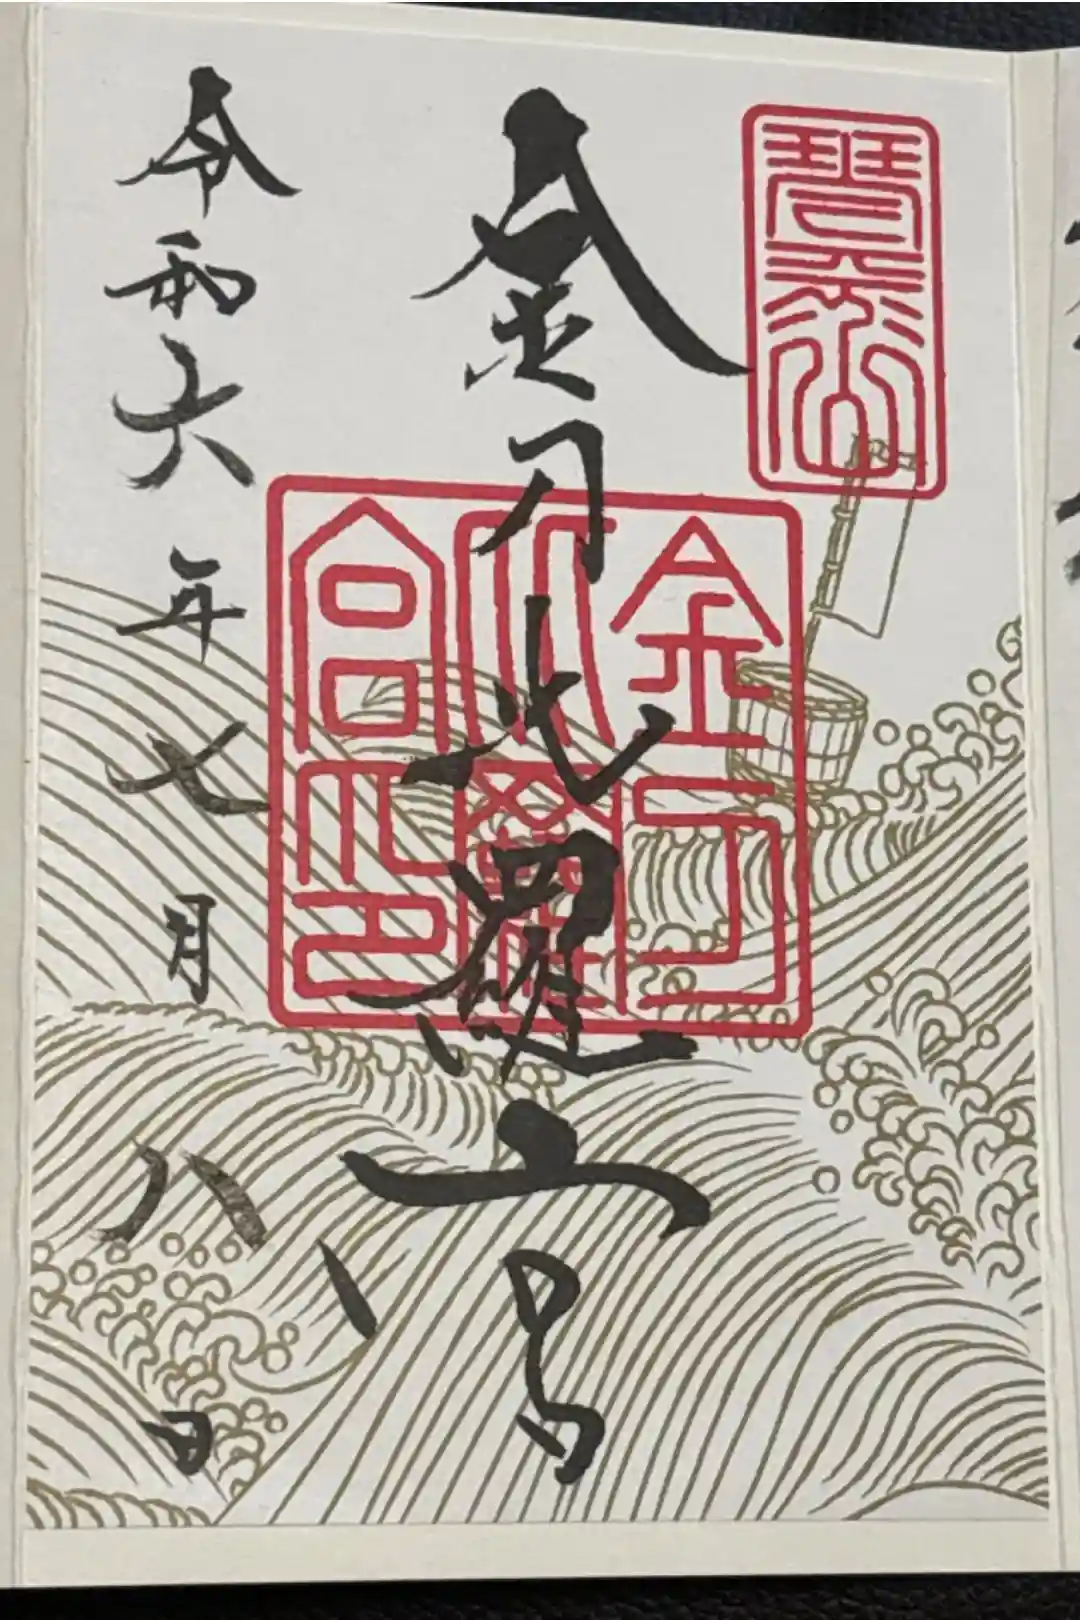 琴平山
金刀比羅宮
金刀
比羅
宮印
令和六年七月八日